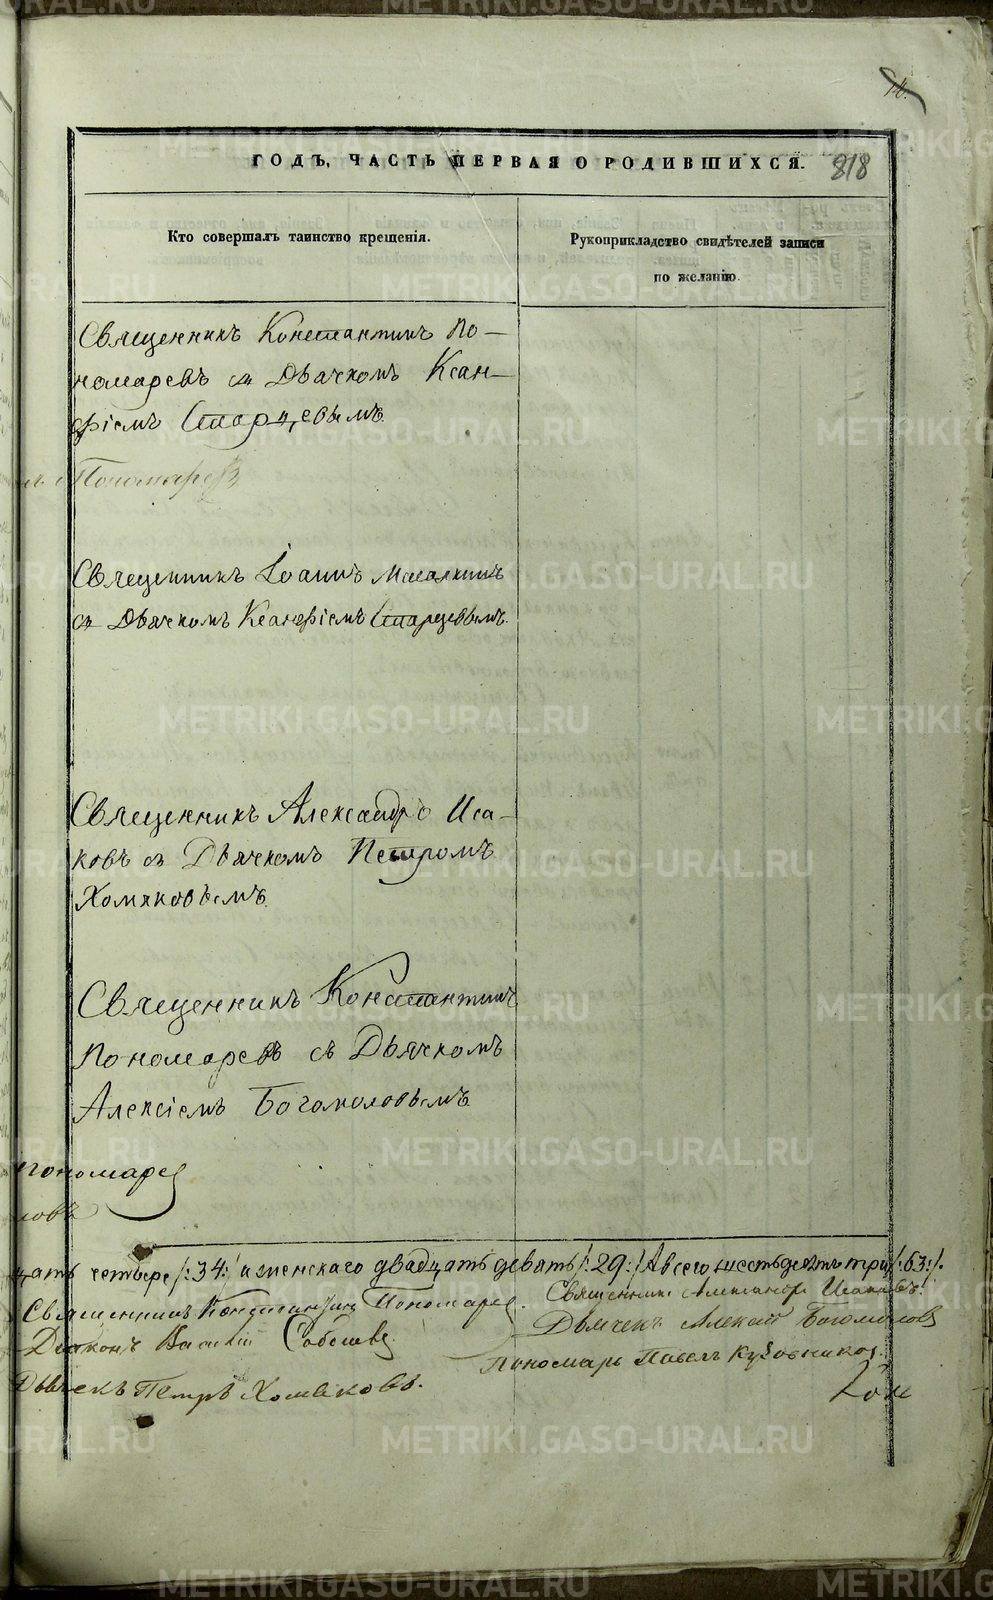 ГОДЪ, ЧАСТЬ ПЕРВАЯ О РОДИВШИХСЯ.
818
Кто совершалъ таинство крещенія.
Рукоприкладство свидѣтелей записи
по желанію.
Священникъ Константинъ По-
номаревъ съ Дьячкомъ Ксан-
фіемъ Старцевымъ.
Пономаревъ
Священникъ Іоаннъ
съ Дьячкомъ Ксанфіемъ Старцевымъ.
Священникъ Александръ Иса-
ковъ съ Дьячкомъ Петромъ
Хомяковымъ.
Священникъ Константинъ
Пономаревъ съ Дьячкомъ
Алексіемъ Богомоловымъ.
Пономарев
ловъ
цать четыре /:34:/ и женскаго двадцать девять /:29:/ А всего шестьдесятъ три /:63:/.
Священникъ Константинъ Пономарев.
Священникъ Александръ Исаковъ.
Діаконъ Василій
Дьячекъ Алексій Богомолов
Пономарь Павелъ
Дьячекъ Петръ Хомяковъ.
METRIKI.GASO-URAL.RU